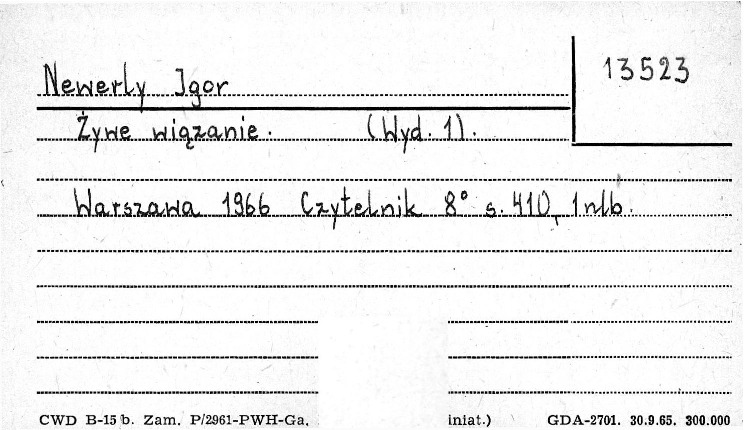 13523
Newerly Igor
Żywe wiązanie. (Wyd. 1).
Warszawa 1966 Czytelnik 8° s. 410, 1 nlb.
CWD B-15 b. Zam. P/2961-PWH-Ga. iniat.) GDA-2701. 30.9.65. 300.000